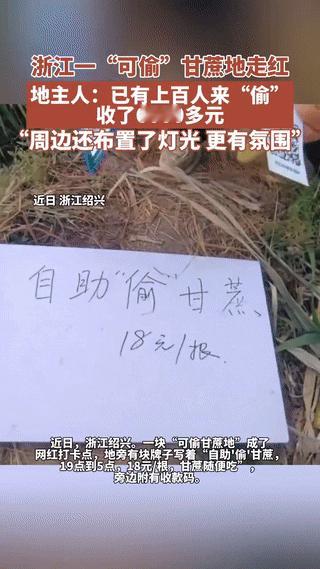 浙江一“可偷”甘蔗地走红
地主人：已有上百人来“偷”
收了多元
“周边还布置了灯光 更有氛围”
近日 浙江绍兴
自助“偷”甘蔗
18元/根
近日，浙江绍兴。一块“可偷甘蔗地”成了
网红打卡点，地旁有块牌子写着“自助'偷'甘蔗，
19点到5点，18元/根，甘蔗随便吃”，
旁边附有收款码。